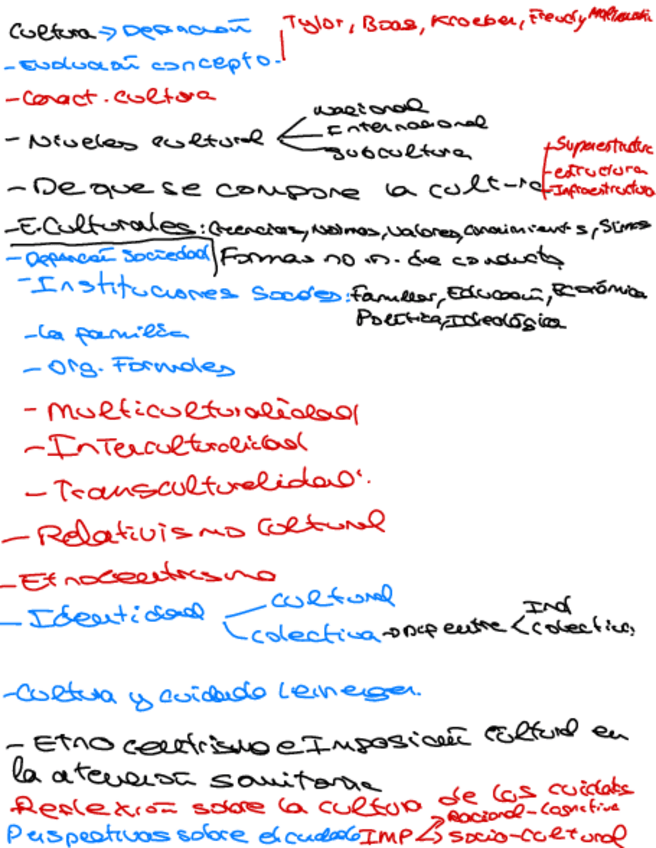 Cultura → Definición
Tylor, Boas, Kroeber, Freud y Malinowski
- Evolución concepto.
- Caract. cultura
- Niveles cultural
Nacional
Internacional
Subcultura
- De que se compone la cultura
- Superestructura
- estructura
- Infraestructura
- E. Culturales: Creencias, Normas, Valores, Conocimientos,
Formas no n. de conducta
- Definición Sociedad
- Instituciones Sociales: Familiar, Educación, Económica
Política, Ideológica
- La familia
- Org. Formales
- Multiculturalidad
- Interculturalidad
- Transculturalidad
- Relativismo Cultural
- Etnocentrismo
- Identidad
cultural
colectiva → Dif entre
Ind
colectiva
- Cultura y cuidado Leininger.
- Etnocentrismo e Imposición Cultural en
la atención sanitaria
Reflexión sobre la cultura de los cuidados
Perspectivas sobre el cuidado IMP
Racional-cognitiva
Socio-cultural